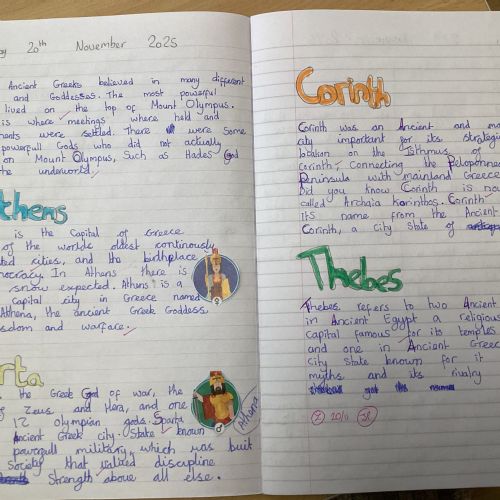 20th November 2025
Ancient Greeks believed in many different
and Goddesses. The most powerful
lived on the top of Mount Olympus.
is where meetings where held and
ments were settled. There were some
powerfull Gods who did not actually
on Mount Olympus, Such as Hades God
the underworld.
thens
is the Capital of Greece
of the worlds oldest continously
ted cities, and the birthplace
mocracy. In Athens there is
snow expected. Athens is a
Capital city in Greece named
Athena, the ancient Greek Goddess
isdom and warfare.
rta
the Greek God of war, the
Zeus and Hera, and one
12 olympian gods. Sparta
Ancient Greek city-State known
powerfull military, which was built
Society that valued discipline
Strength above all else.
Athena
Corinth
Corinth was an Ancient and
city important for its strategic
location on the Isthmus of
corinth, Connecting the Peloponnes
Peninsula with mainland Greece
Did you know Corinth is now
called Archaia Korinthos. Corinth
its name from the Ancient
Corinth, a City State of
Thebes
Thebes refers to two Ancient
in Ancient Egypt a religious
capital famous for its temples
and one in Ancient Greece
City State known for it
myths and its rivalry
20/11